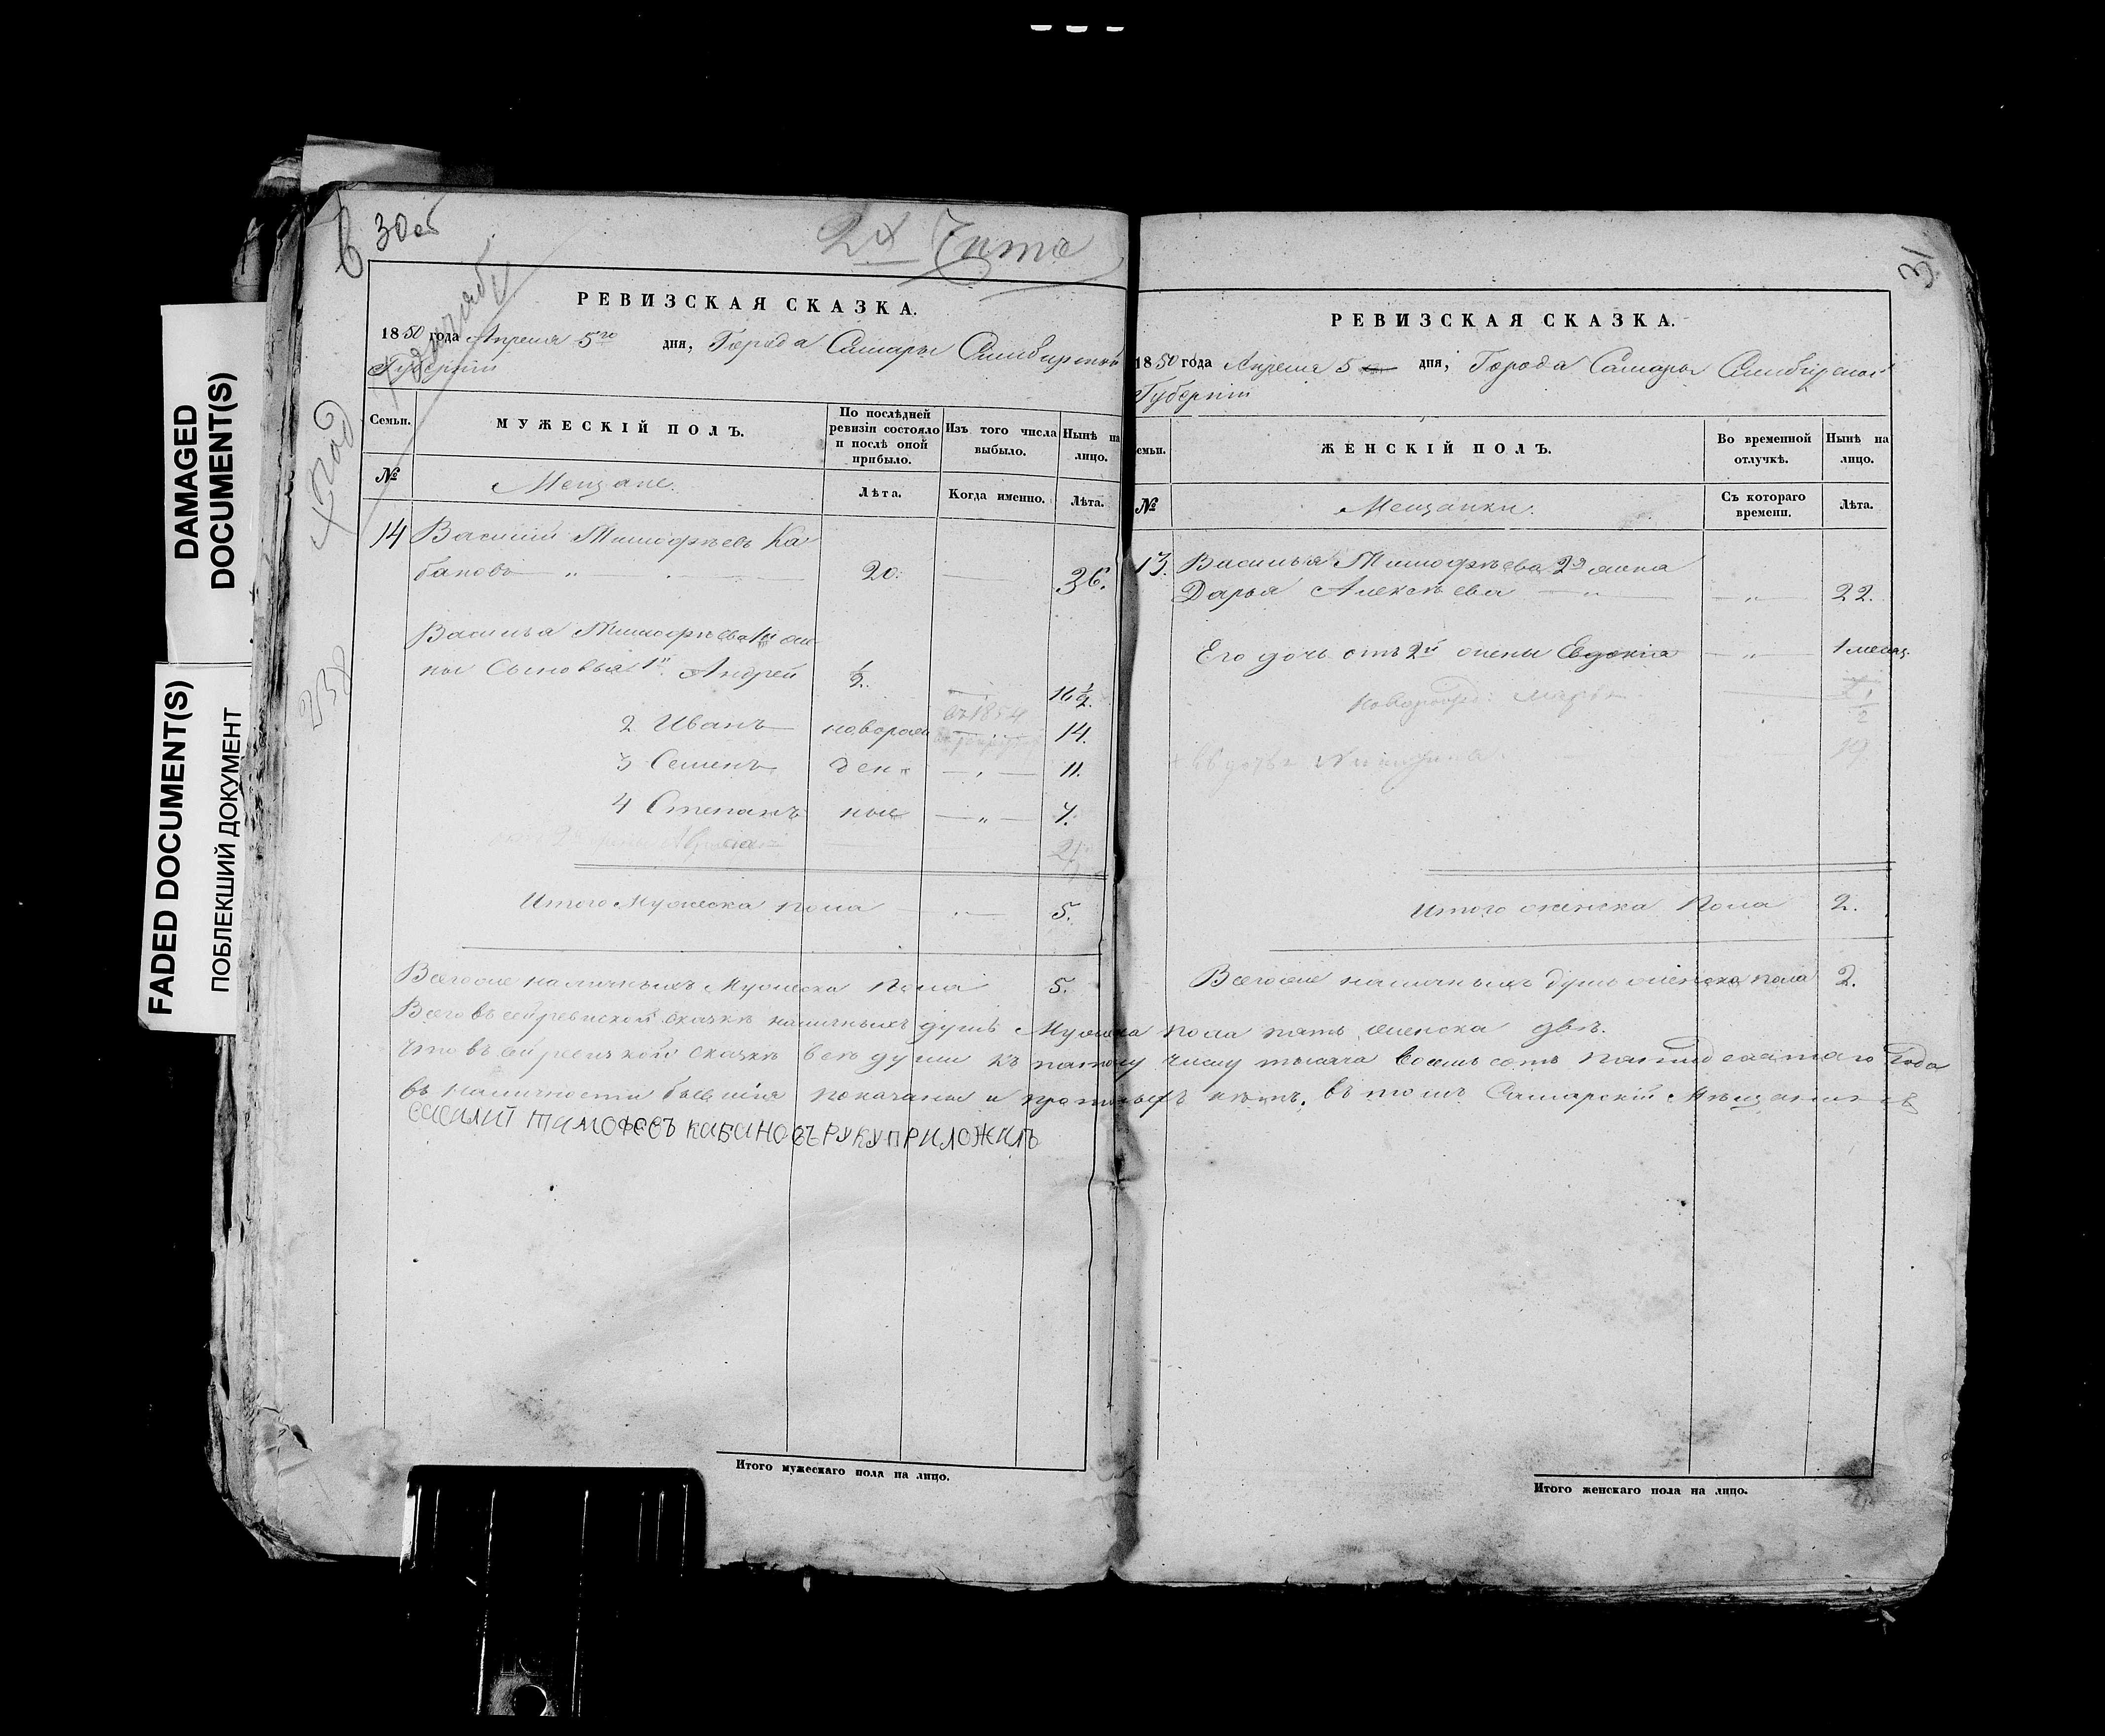 DAMAGED
DOCUMENT(S)
FADED DOCUMENT(S)
ПОБЛЕКШИЙ ДОКУМЕНТ
6 30об
РЕВИЗСКАЯ СКАЗКА.
1850 года Апреля 5го дня, Города Самары Симбирской
Губернии
Семьи.
МУЖЕСКІЙ ПОЛЪ.
По послѣдней
ревизіи состояло
и послѣ оной
прибыло.
Изъ того числа
выбыло.
Нынѣ на
лицо.
№
Мещане.
Лѣта.
Когда именно.
Лѣта.
14 Василий Тимофѣевъ Ка
бановъ 20. 36.
Василья Тимофѣева 1й же
ны Сыновья 1й Андрей ½. 16½.
2 Иванъ новорож 14.
въ 1854
3 Семенъ ден 11.
4 Степанъ ные 7.
Итого Мужеска пола 5.
Всего же наличныхъ Мужеска пола 5.
31
РЕВИЗСКАЯ СКАЗКА.
1850 года Апреля 5 дня, Города Самары Симбирской
Губернии
семьи.
ЖЕНСКІЙ ПОЛЪ.
Во временной
отлучкѣ.
Нынѣ на
лицо.
№
Мещанки.
Съ котораго
времени.
Лѣта.
13. Василья Тимофѣева 2я жена
Дарья Алексѣева 22.
Его дочь отъ 2й жены Евдокия 1 месяц.
Итого женска пола 2.
Всего же наличныхъ душъ женска пола 2.
Всего въ сей ревиской скаскѣ наличныхъ душъ Мужска пола пять женска двѣ.
Что въ сей ревиской скаскѣ всѣ души къ пятому числу тысяча восемь сотъ пятидесятаго года
въ наличности бывшия показаны и прописныхъ нѣтъ, въ томъ Самарскій Мѣщанинъ
ВАСИЛИЙ ТИМОФЕЕВЪ КАБАНОВЪ РУКУ ПРИЛОЖИЛЪ
Итого мужескаго пола на лицо.
Итого женскаго пола на лицо.